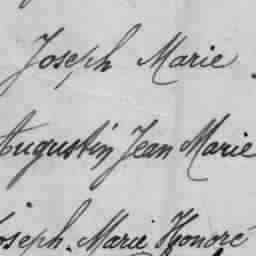 Joseph Marie
Augustin Jean Marie
Joseph. Marie Honoré